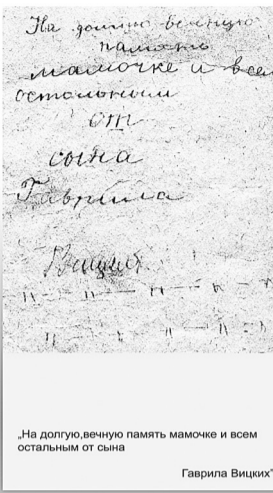 На долгую вечную
память
мамочке и всем
остальным
от
сына
Гаврила
Вицких
„На долгую,вечную память мамочке и всем
остальным от сына
Гаврила Вицких"